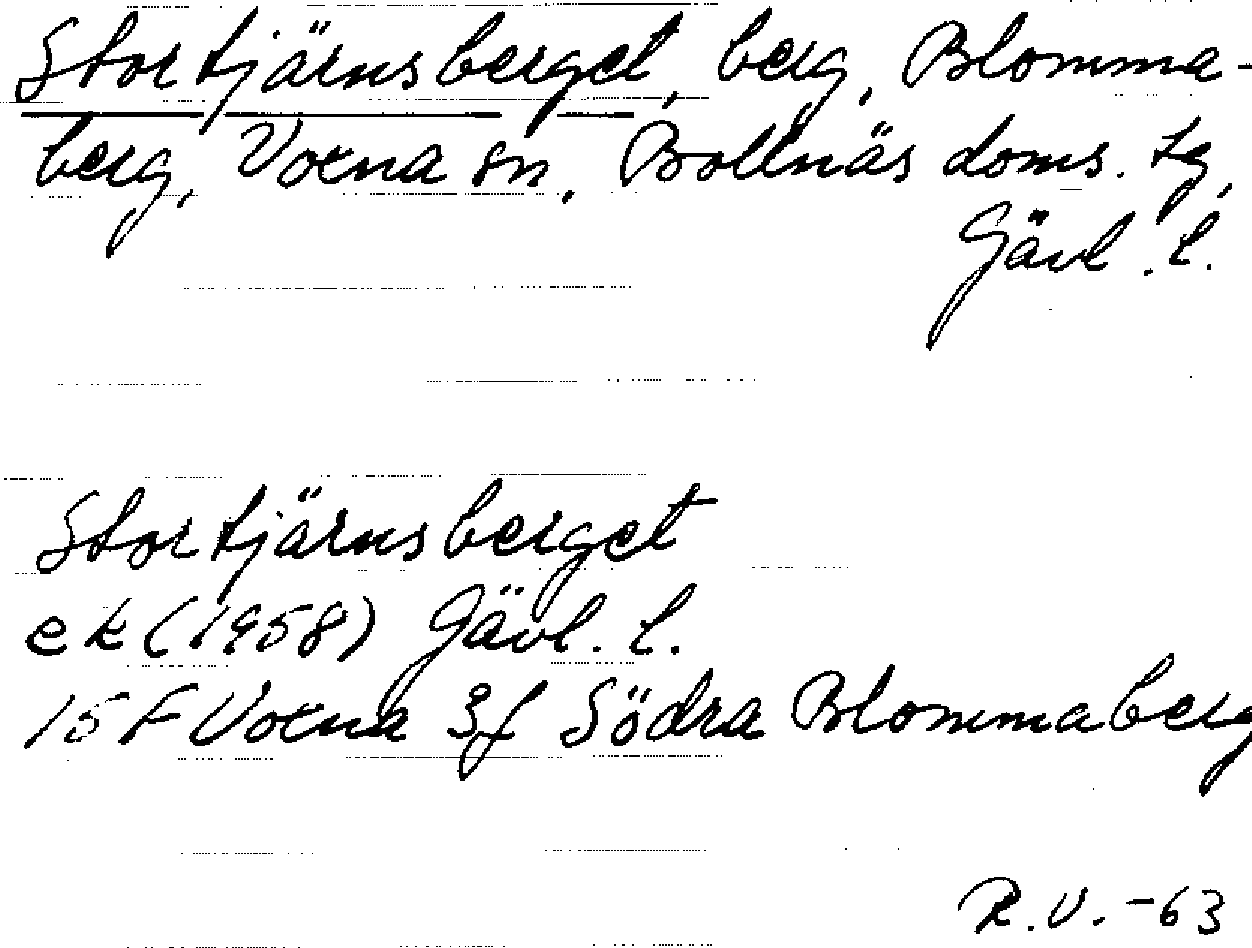 Stortjärnsberget, berg, Blomma-
berg, Voxna sn, Bollnäs doms. tg,
Gävl. l.
Stortjärnsberget
ek (1958) Gävl. l.
15 F Voxna 3f Södra Blommaberg
R.V. -63